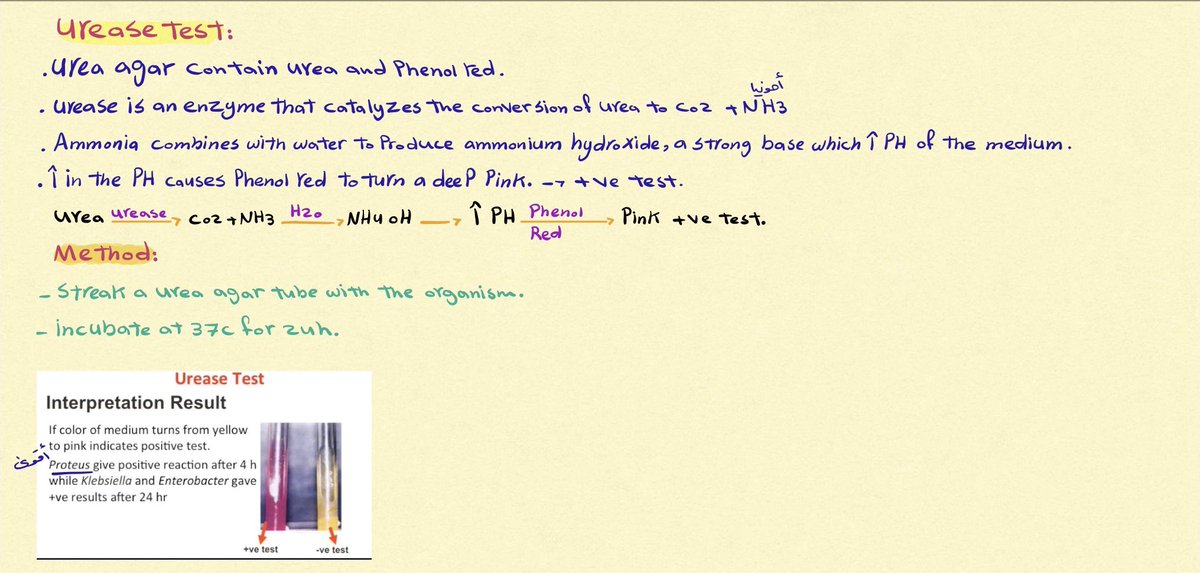 Urease Test:
. Urea agar contain urea and Phenol red.
أمونيا
. Urease is an enzyme that catalyzes the conversion of urea to Co2 + NH3
. Ammonia combines with water to Produce ammonium hydroxide, a strong base which ↑ PH of the medium.
. ↑ in the PH causes Phenol red to turn a deeP Pink. → +ve test.
Urea urease → Co2 + NH3 H2o → NH4 oH → ↑ PH Phenol Red → Pink +ve test.
Method:
- Streak a urea agar tube with the organism.
- incubate at 37c for 24h.
Urease Test
Interpretation Result
If color of medium turns from yellow
to pink indicates positive test.
أقوى
Proteus give positive reaction after 4 h
while Klebsiella and Enterobacter gave
+ve results after 24 hr
+ve test
-ve test